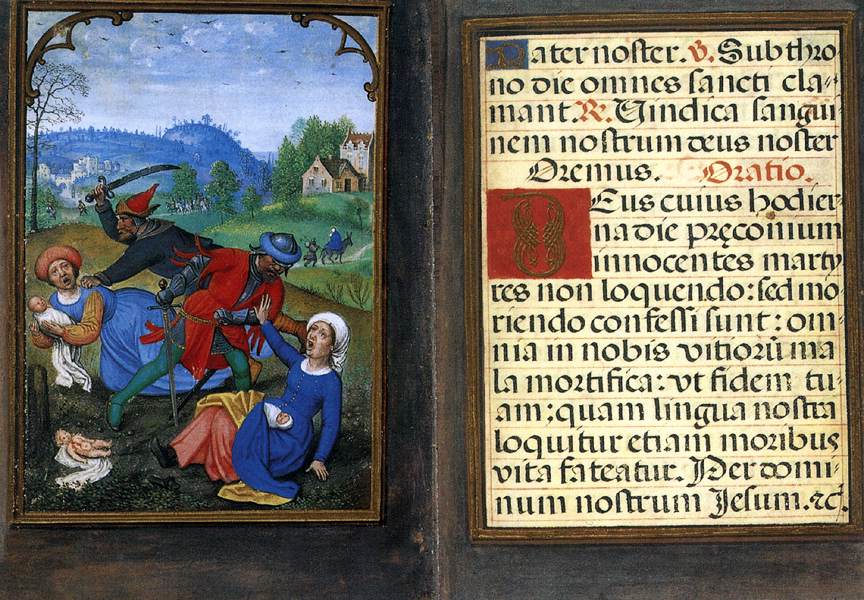 Pater noster. V. Sub thro
no die omnes sancti cla-
mant. R. Vindica sangui
nem nostrum deus noster
Oremus. Oratio.
DEus cuius hodier
na die pręconium
innocentes marty
res non loquendo: sed mo
riendo confessi sunt: om
nia in nobis vitiorū ma
la mortifica: vt fidem tu
am; quam lingua nostra
loquitur etiam moribus
vita fateatur. Per domi-
num nostrum Jesum. ⁊c̃.